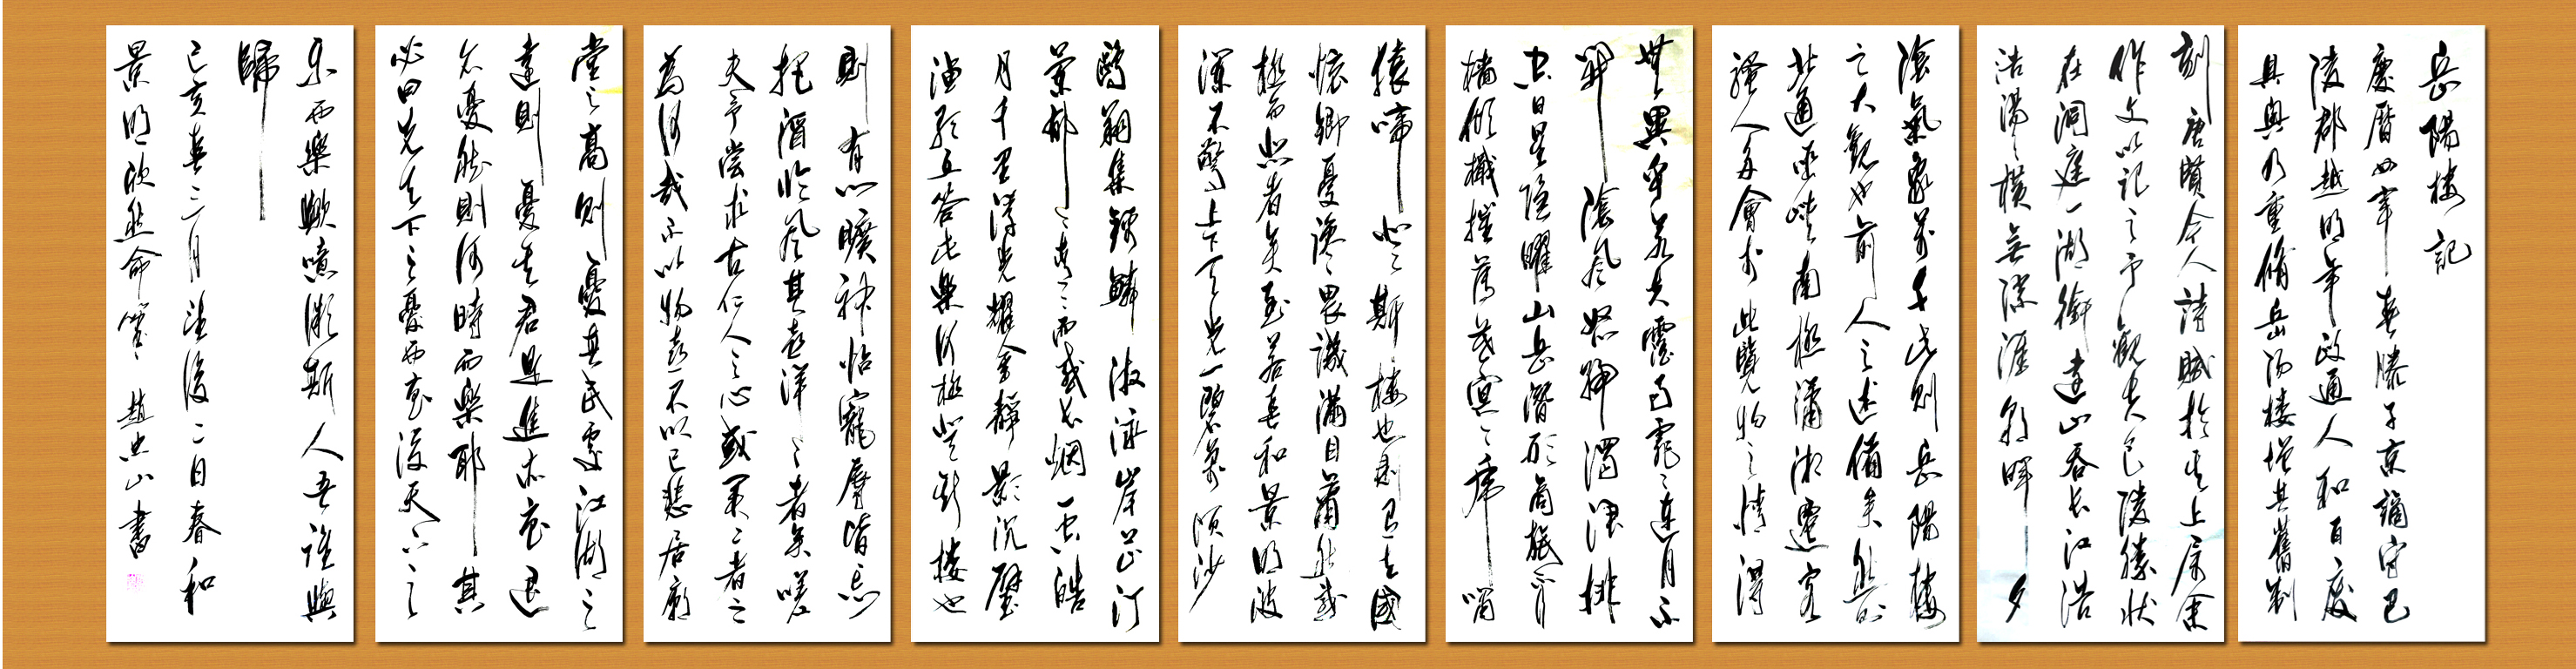 岳陽樓記
慶曆四年春滕子京謫守巴
陵郡越明年政通人和百廢
具興乃重脩岳陽樓增其舊制
刻唐賢今人詩賦於其上屬余
作文以記之予觀夫巴陵勝狀
在洞庭一湖銜遠山吞長江浩
浩湯々橫無際涯朝暉夕
陰氣象萬千此則岳陽樓
之大觀也前人之述備矣然則
北通巫峽南極瀟湘遷客
騷人多會於此覽物之情得
無異乎若夫霪雨霏々連月不
開陰風怒號濁浪排
空日星隱曜山岳潛形商旅不行
檣傾檝摧薄暮冥々虎嘯
猿啼登斯樓也則有去國
懷鄉憂讒畏譏滿目蕭然感
極而悲者矣至若春和景明波
瀾不驚上下天光一碧萬頃沙
鷗翔集錦鱗游泳岸芷汀
蘭郁々青々而或長烟一空皓
月千里浮光耀金靜影沉璧
漁歌互答此樂何極登斯樓也
則有心曠神怡寵辱皆忘
把酒臨風其喜洋々者矣嗟
夫予嘗求古仁人之心或異二者之
為何哉不以物喜不以己悲居廟
堂之高則憂其民處江湖之
遠則憂其君是進亦憂退
亦憂然則何時而樂耶其
必曰先天下之憂而憂後天下之
樂而樂歟噫微斯人吾誰與
歸
己亥春三月望後二日春和
景明欣然命筆 趙忠山書